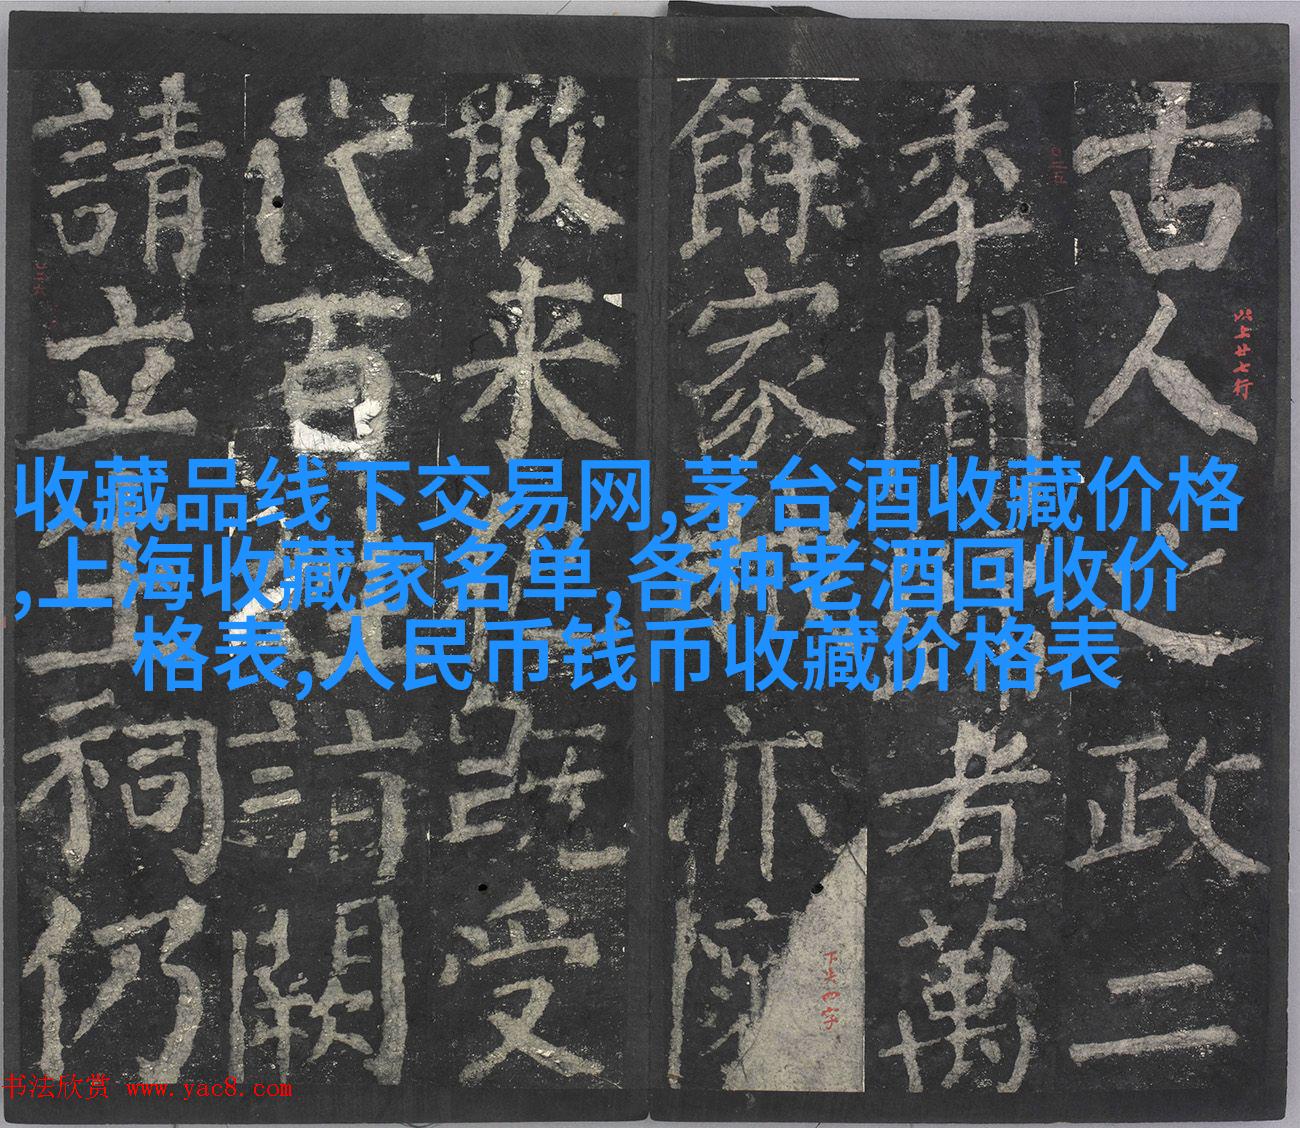 收藏品线下交易网,茅台酒收藏价格
,上海收藏家名单,各种老酒回收价
格表,人民币钱币收藏价格表
古人之政二
以上廿七行
秊間者萬
餘家亦
下尖四字
敢来既受
代百闕
請立生祠仍
书法欣赏 www.yac8.com